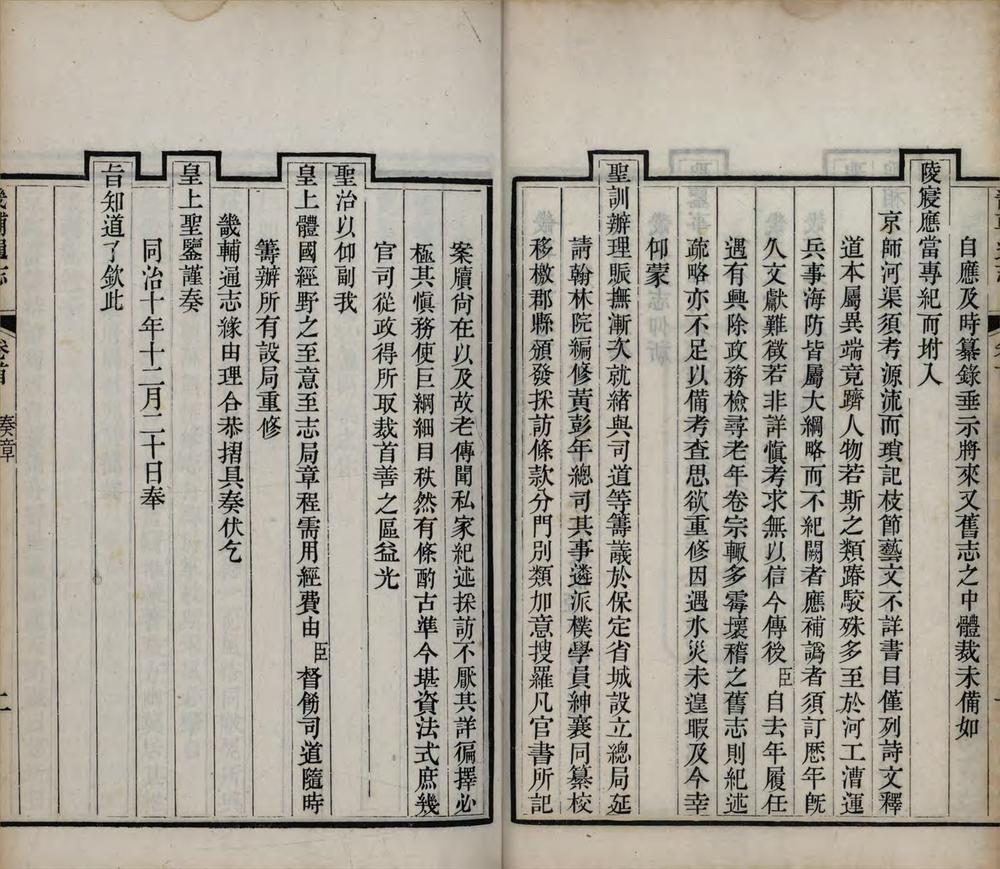 自應及時纂錄垂示將來又舊志之中體裁未備如
陵寢應當專紀而坿入
京師河渠須考源流而瑣記枝節藝文不詳書目僅列詩文釋
道本屬異端竟躋人物若斯之類踳駁殊多至於河工漕運
兵事海防皆屬大綱略而不紀闕者應補譌者須訂歷年旣
久文獻難徵若非詳愼考求無以信今傳後臣自去年履任
遇有興除政務檢尋老年卷宗輒多霉壞稽之舊志則紀述
疏略亦不足以備考查思欲重修因遇水災未遑暇及今幸
仰蒙
聖訓辦理賑撫漸次就緒與司道等籌議於保定省城設立總局延
請翰林院編修黃彭年總司其事遴派樸學員紳襄同纂校
移檄郡縣頒發採訪條款分門別類加意搜羅凡官書所記
案牘尙在以及故老傳聞私家紀述採訪不厭其詳徧擇必
極其愼務使巨綱細目秩然有條酌古準今堪資法式庶幾
官司從政得所取裁首善之區益光
聖治以仰副我
皇上體國經野之至意至志局章程需用經費由臣督飭司道隨時
籌辦所有設局重修
畿輔通志緣由理合恭摺具奏伏乞
皇上聖鑒謹奏
同治十年十二月二十日奉
旨知道了欽此
畿輔通志 卷首 奏章 二